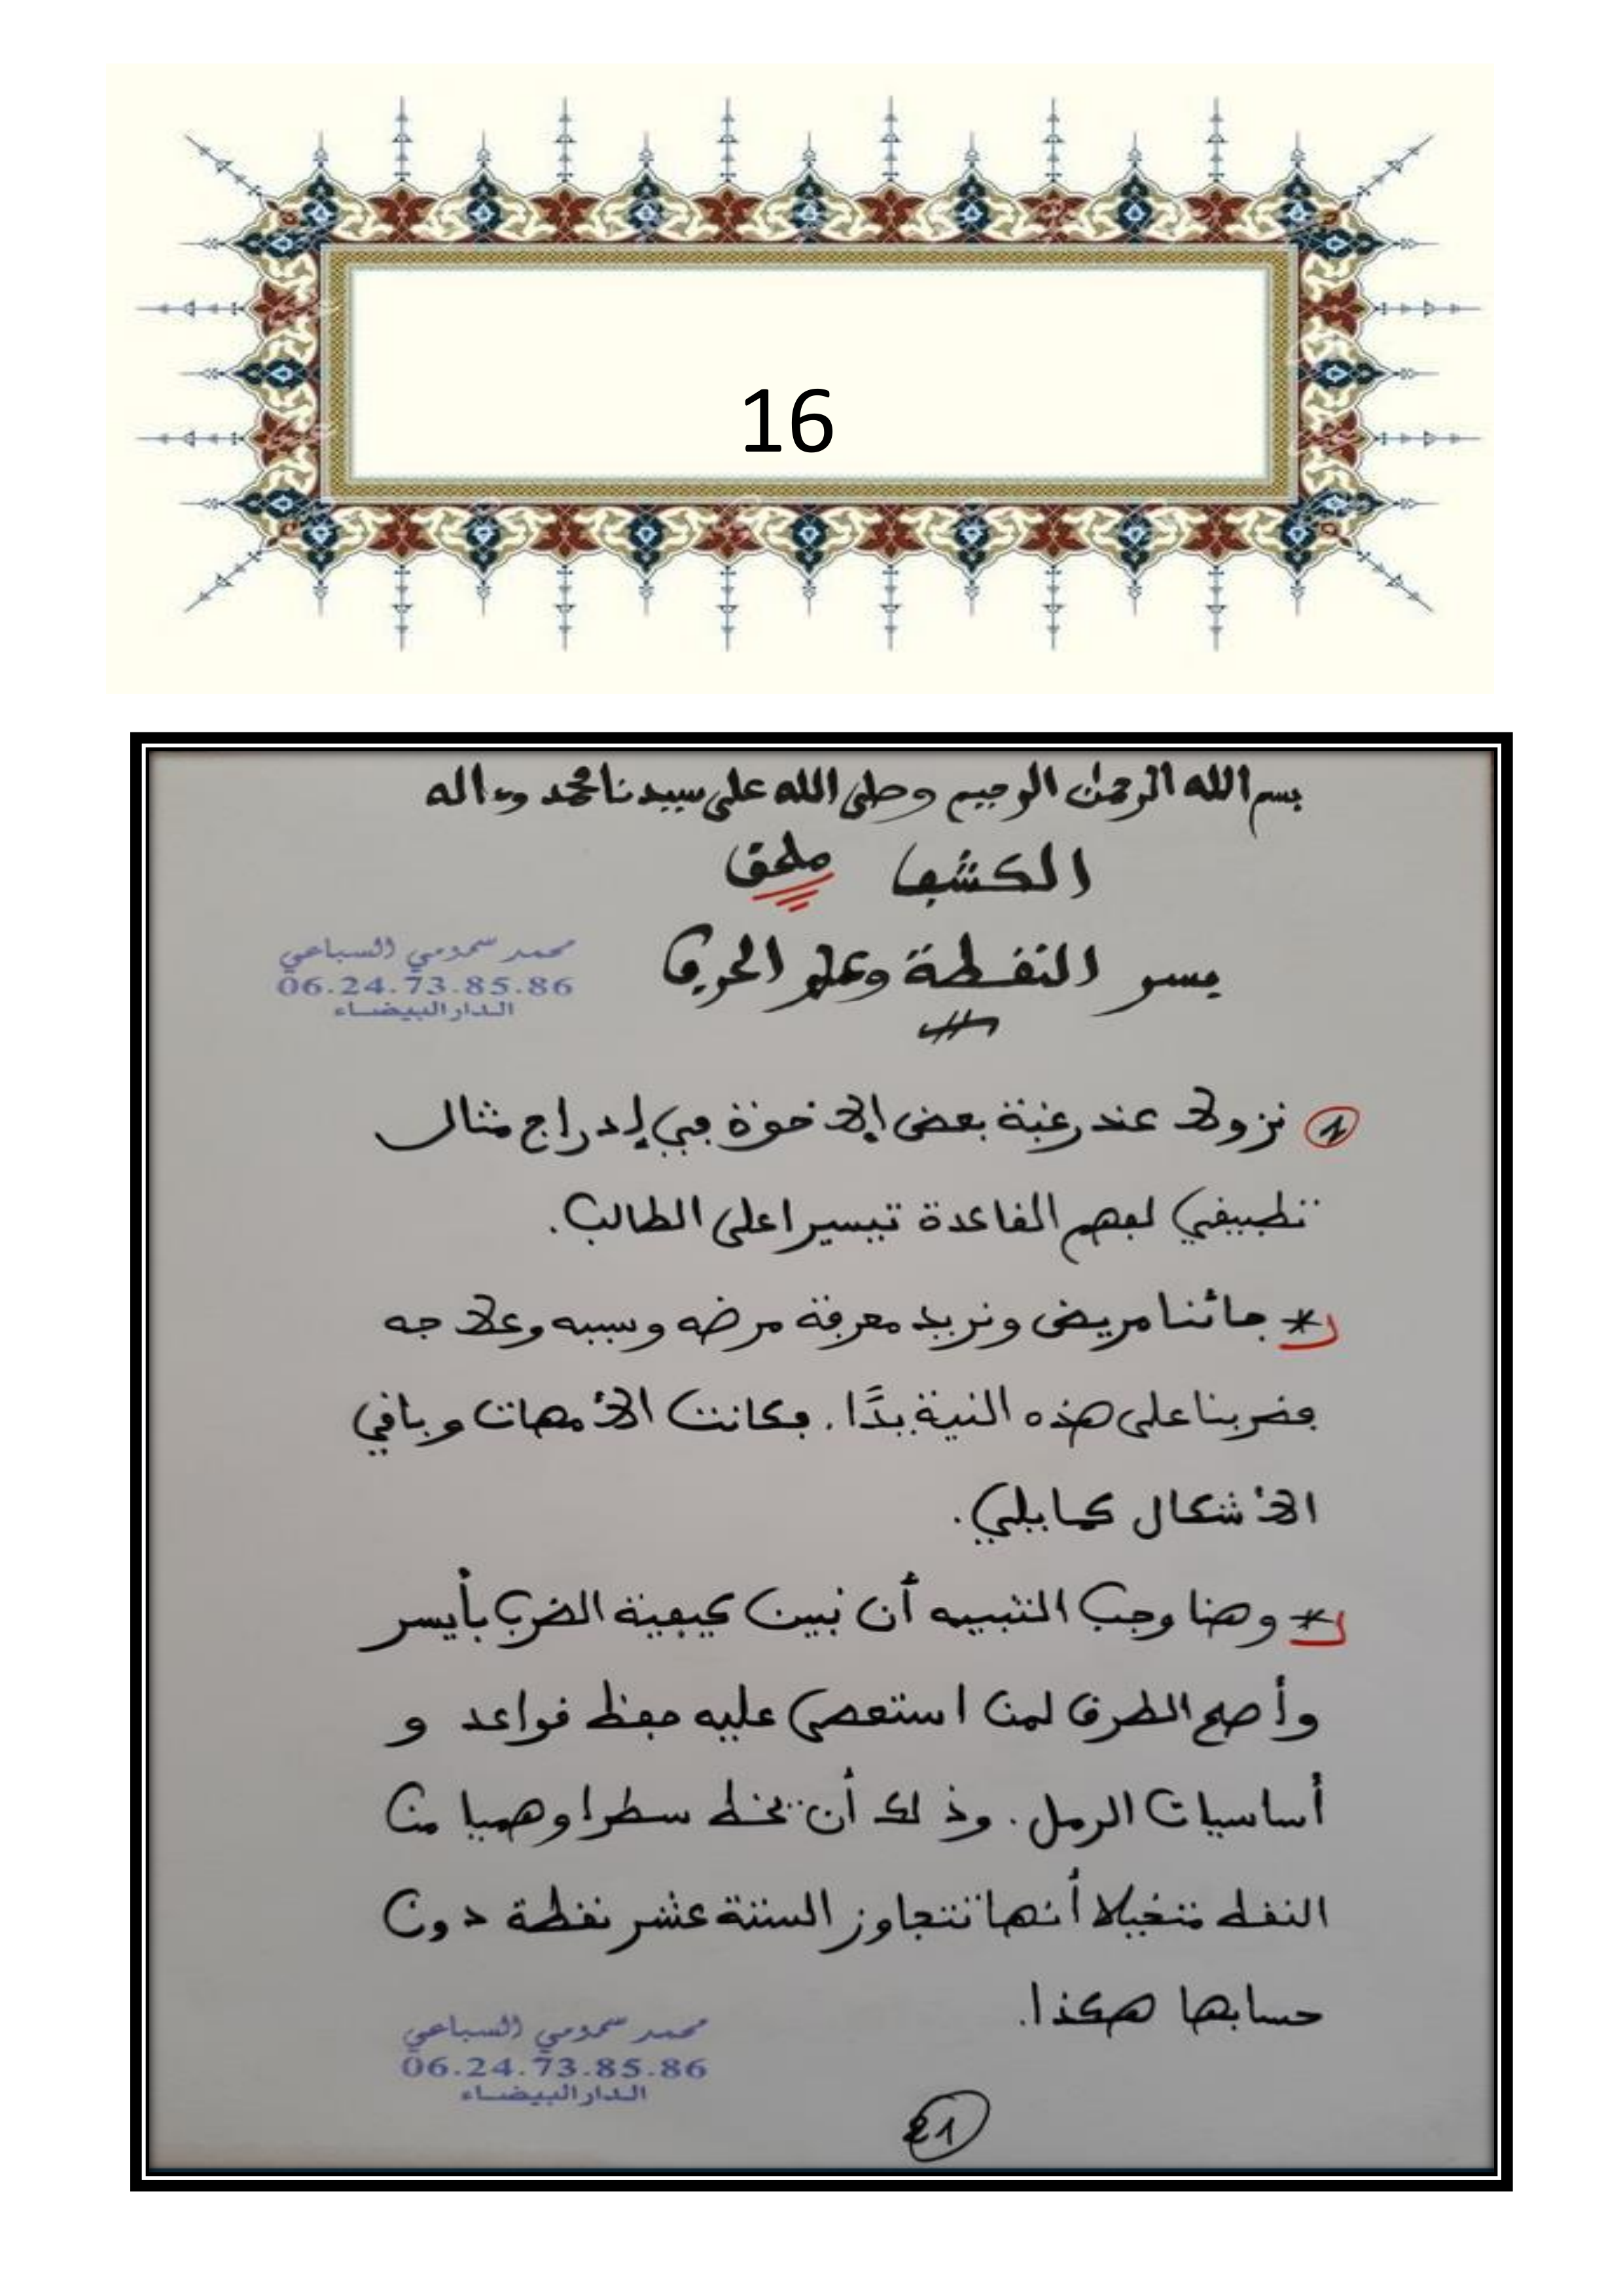 16
بسم الله الرحمن الرحيم وصلى الله على سيدنا محمد وءاله
الكشف ملحق
بسر النقطة وعلم الحرف
محمد سمومي السباعي
06.24.73.85.86
الدار البيضاء
1 نزولا عند رغبة بعض الإخوة في إدراج مثال
تطبيقي لفهم القاعدة تيسيرا على الطالب.
* جائنا مريض ونريد معرفة مرضه وسببه وعلاجه
فضربنا على هذه النية بدًا. فكانت الأمهات وباقي
الأشكال كما يلي.
* وهنا وجب التنبيه أن نبين كيفية الضرب بأيسر
وأصح الطرق لمن استعصى عليه حفظ قواعد و
أساسيات الرمل. وذلك أن تخط سطرا وهميا من
النقط متخيلا أنها تتجاوز الستة عشر نقطة دون
حسابها هكذا.
محمد سمومي السباعي
06.24.73.85.86
الدار البيضاء